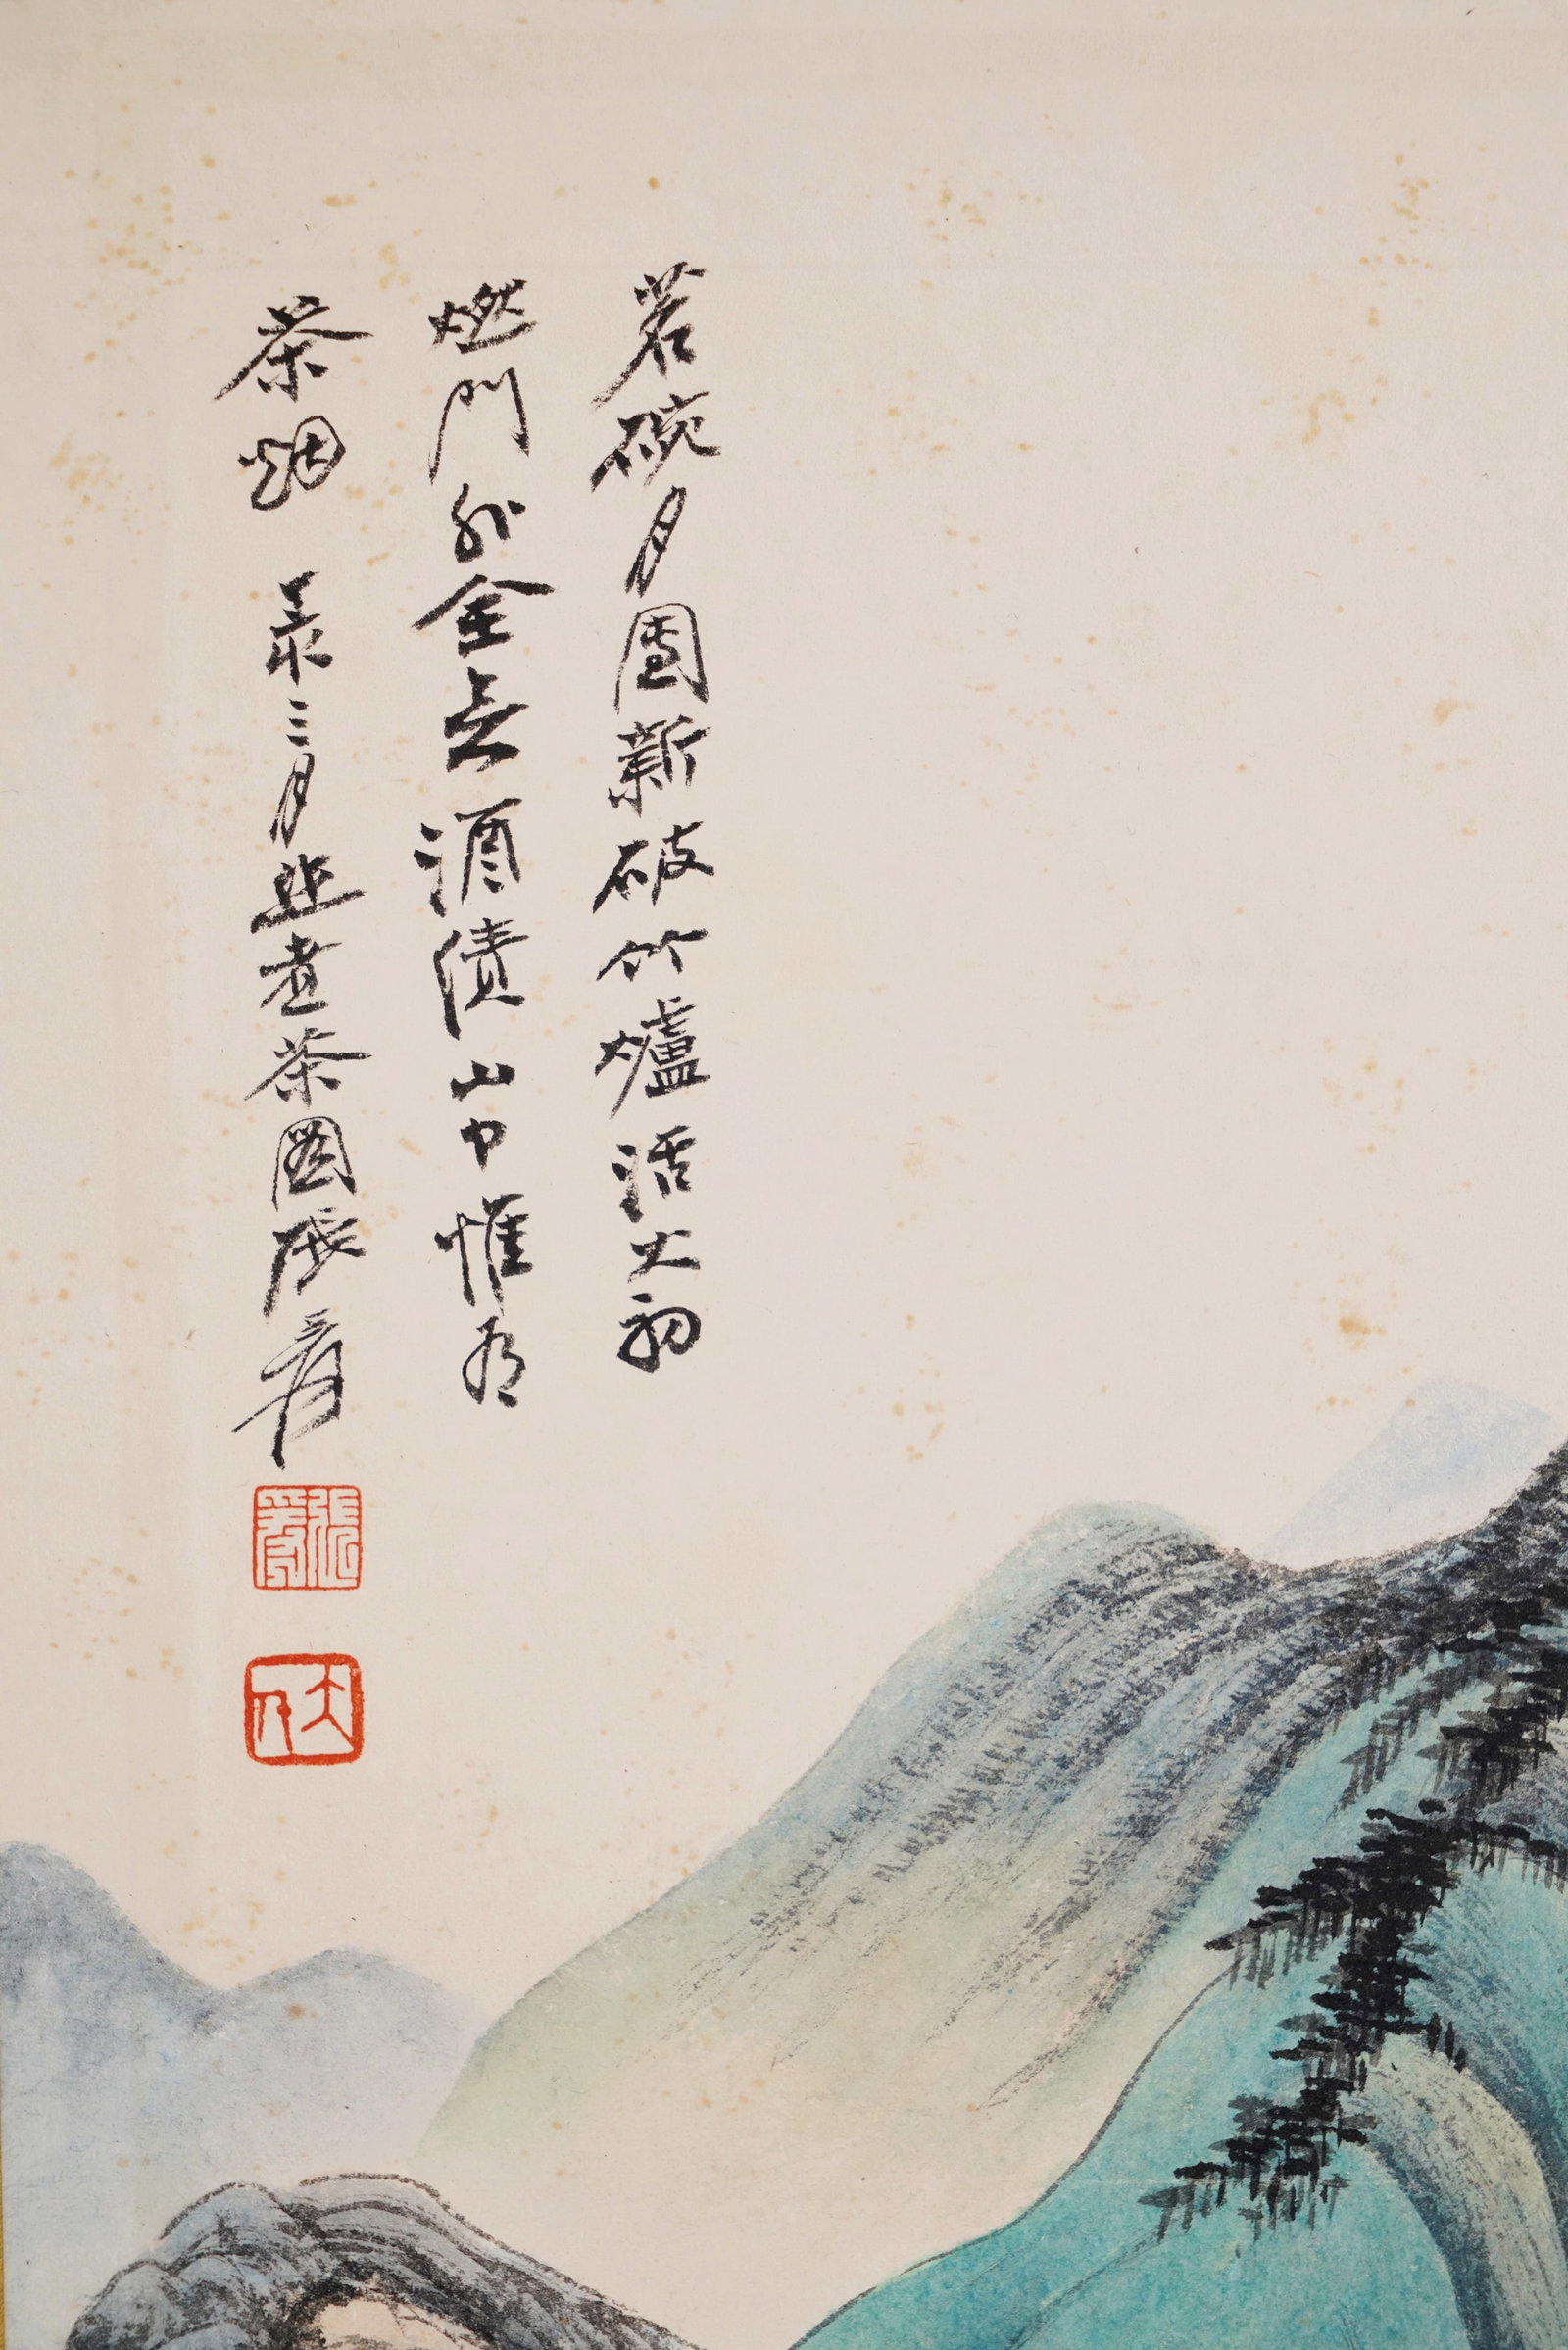 茗碗月團新破竹爐活火初
燃門外全無酒債山中惟有
茶烟 三月並煮茶圖張爰
張爰
大千